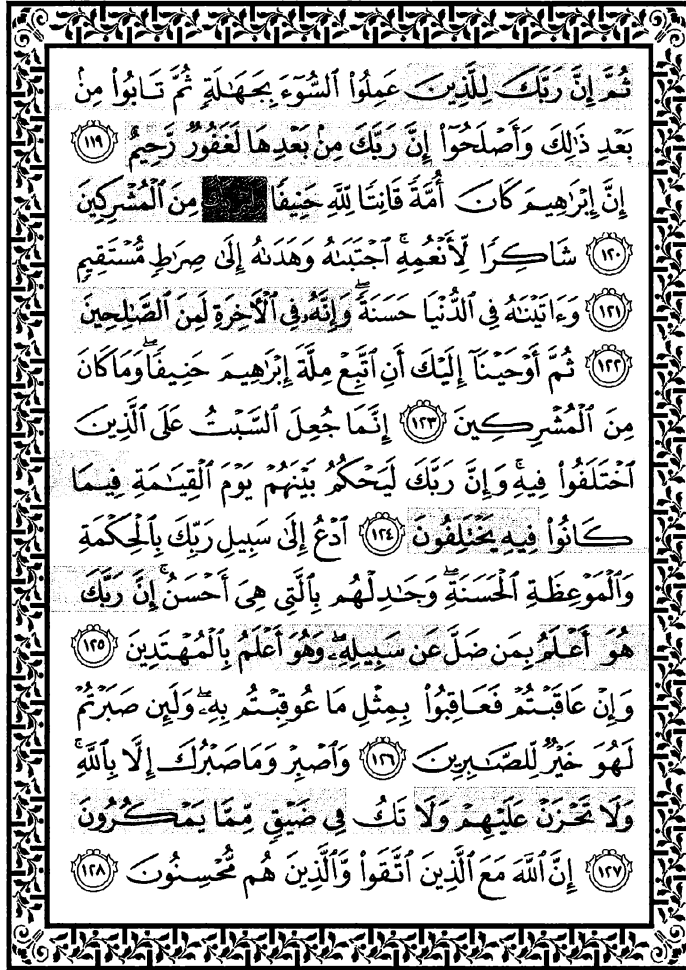 ثُمَّ إِنَّ رَبَّكَ لِلَّذِينَ عَمِلُوا۟ ٱلسُّوٓءَ بِجَهَٰلَةٍ ثُمَّ تَابُوا۟ مِنۢ
بَعْدِ ذَٰلِكَ وَأَصْلَحُوٓا۟ إِنَّ رَبَّكَ مِنۢ بَعْدِهَا لَغَفُورٌ رَّحِيمٌ ١١٩
إِنَّ إِبْرَٰهِيمَ كَانَ أُمَّةً قَانِتًا لِّلَّهِ حَنِيفًا مِنَ ٱلْمُشْرِكِينَ
١٢٠ شَاكِرًا لِّأَنْعُمِهِ ۚ ٱجْتَبَىٰهُ وَهَدَىٰهُ إِلَىٰ صِرَٰطٍ مُّسْتَقِيمٍ
١٢١ وَءَاتَيْنَٰهُ فِى ٱلدُّنْيَا حَسَنَةً ۖ وَإِنَّهُۥ فِى ٱلْءَاخِرَةِ لَمِنَ ٱلصَّٰلِحِينَ
١٢٢ ثُمَّ أَوْحَيْنَآ إِلَيْكَ أَنِ ٱتَّبِعْ مِلَّةَ إِبْرَٰهِيمَ حَنِيفًا ۖ وَمَا كَانَ
مِنَ ٱلْمُشْرِكِينَ ١٢٣ إِنَّمَا جُعِلَ ٱلسَّبْتُ عَلَى ٱلَّذِينَ
ٱخْتَلَفُوا۟ فِيهِ ۚ وَإِنَّ رَبَّكَ لَيَحْكُمُ بَيْنَهُمْ يَوْمَ ٱلْقِيَٰمَةِ فِيمَا
كَانُوا۟ فِيهِ يَخْتَلِفُونَ ١٢٤ ٱدْعُ إِلَىٰ سَبِيلِ رَبِّكَ بِٱلْحِكْمَةِ
وَٱلْمَوْعِظَةِ ٱلْحَسَنَةِ ۖ وَجَٰدِلْهُم بِٱلَّتِى هِىَ أَحْسَنُ ۚ إِنَّ رَبَّكَ
هُوَ أَعْلَمُ بِمَن ضَلَّ عَن سَبِيلِهِۦ ۖ وَهُوَ أَعْلَمُ بِٱلْمُهْتَدِينَ ١٢٥
وَإِنْ عَاقَبْتُمْ فَعَاقِبُوا۟ بِمِثْلِ مَا عُوقِبْتُم بِهِۦ ۖ وَلَئِن صَبَرْتُمْ
لَهُوَ خَيْرٌ لِّلصَّٰبِرِينَ ١٢٦ وَٱصْبِرْ وَمَا صَبْرُكَ إِلَّا بِٱللَّهِ ۚ
وَلَا تَحْزَنْ عَلَيْهِمْ وَلَا تَكُ فِى ضَيْقٍ مِّمَّا يَمْكُرُونَ
١٢٧ إِنَّ ٱللَّهَ مَعَ ٱلَّذِينَ ٱتَّقَوا۟ وَّٱلَّذِينَ هُم مُّحْسِنُونَ ١٢٨